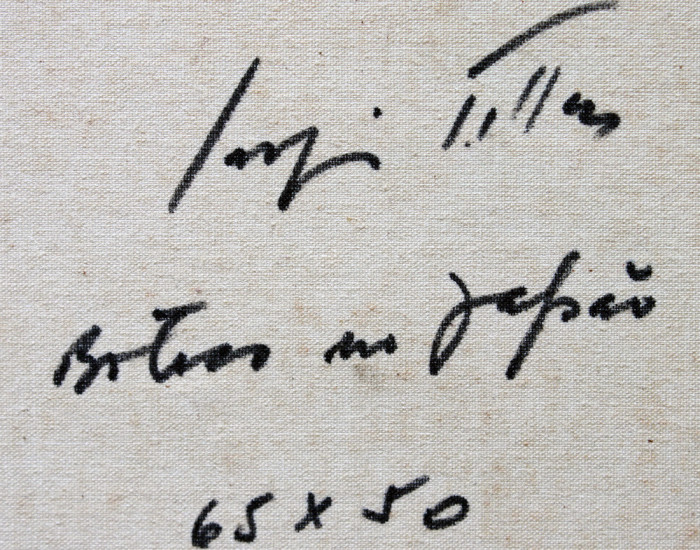 Sergio Telles
Botecos no Japão
65 x 50